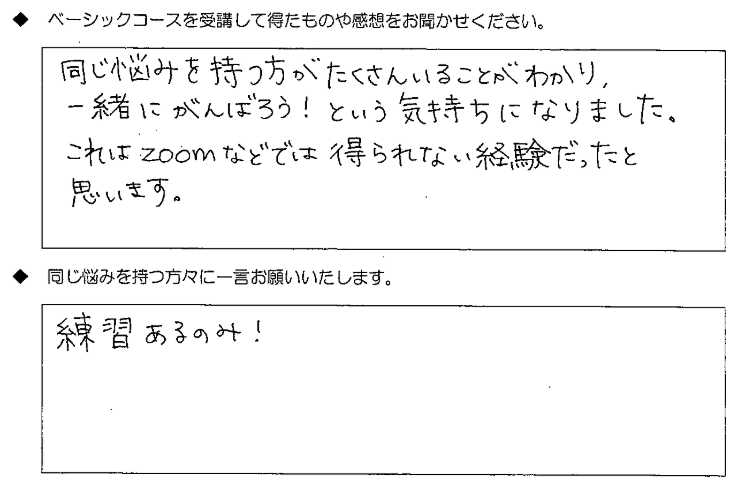 ◆ ベーシックコースを受講して得たものや感想をお聞かせください。
同じ悩みを持つ方がたくさんいることがわかり、
一緒にがんばろう！という気持ちになりました。
これはzoomなどでは得られない経験だったと
思います。
◆ 同じ悩みを持つ方々に一言お願いいたします。
練習あるのみ！